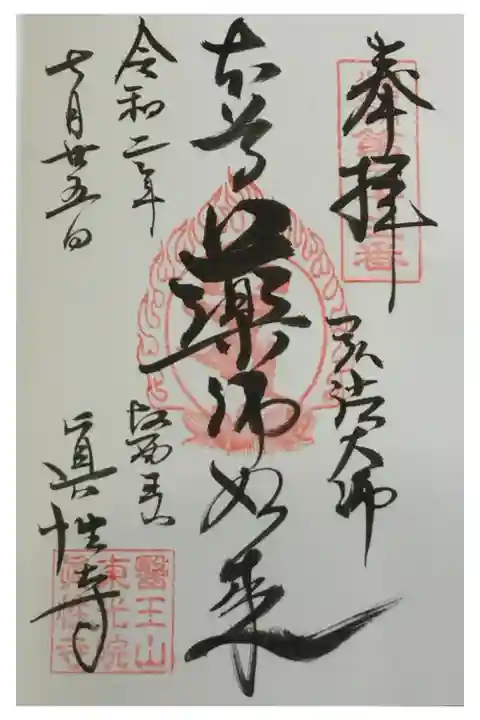 奉拝
弘法大師
本尊
薬師如来
令和二年
七月廿五日
醫王山
眞性寺
醫王山
東光院
眞性寺